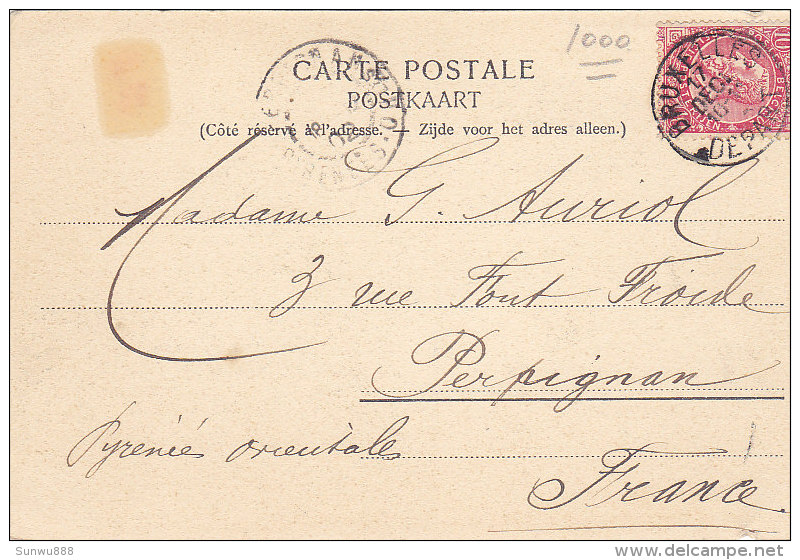 1000
CARTE POSTALE
POSTKAART
(Côté réservé à l'adresse. — Zijde voor het adres alleen.)
BRUXELLES
17
DEC
DEPART
02
Madame G. Auriol
3 rue Font Froide
Perpignan
Pyrenées orientales
France
Sunwu888
delcampe.net